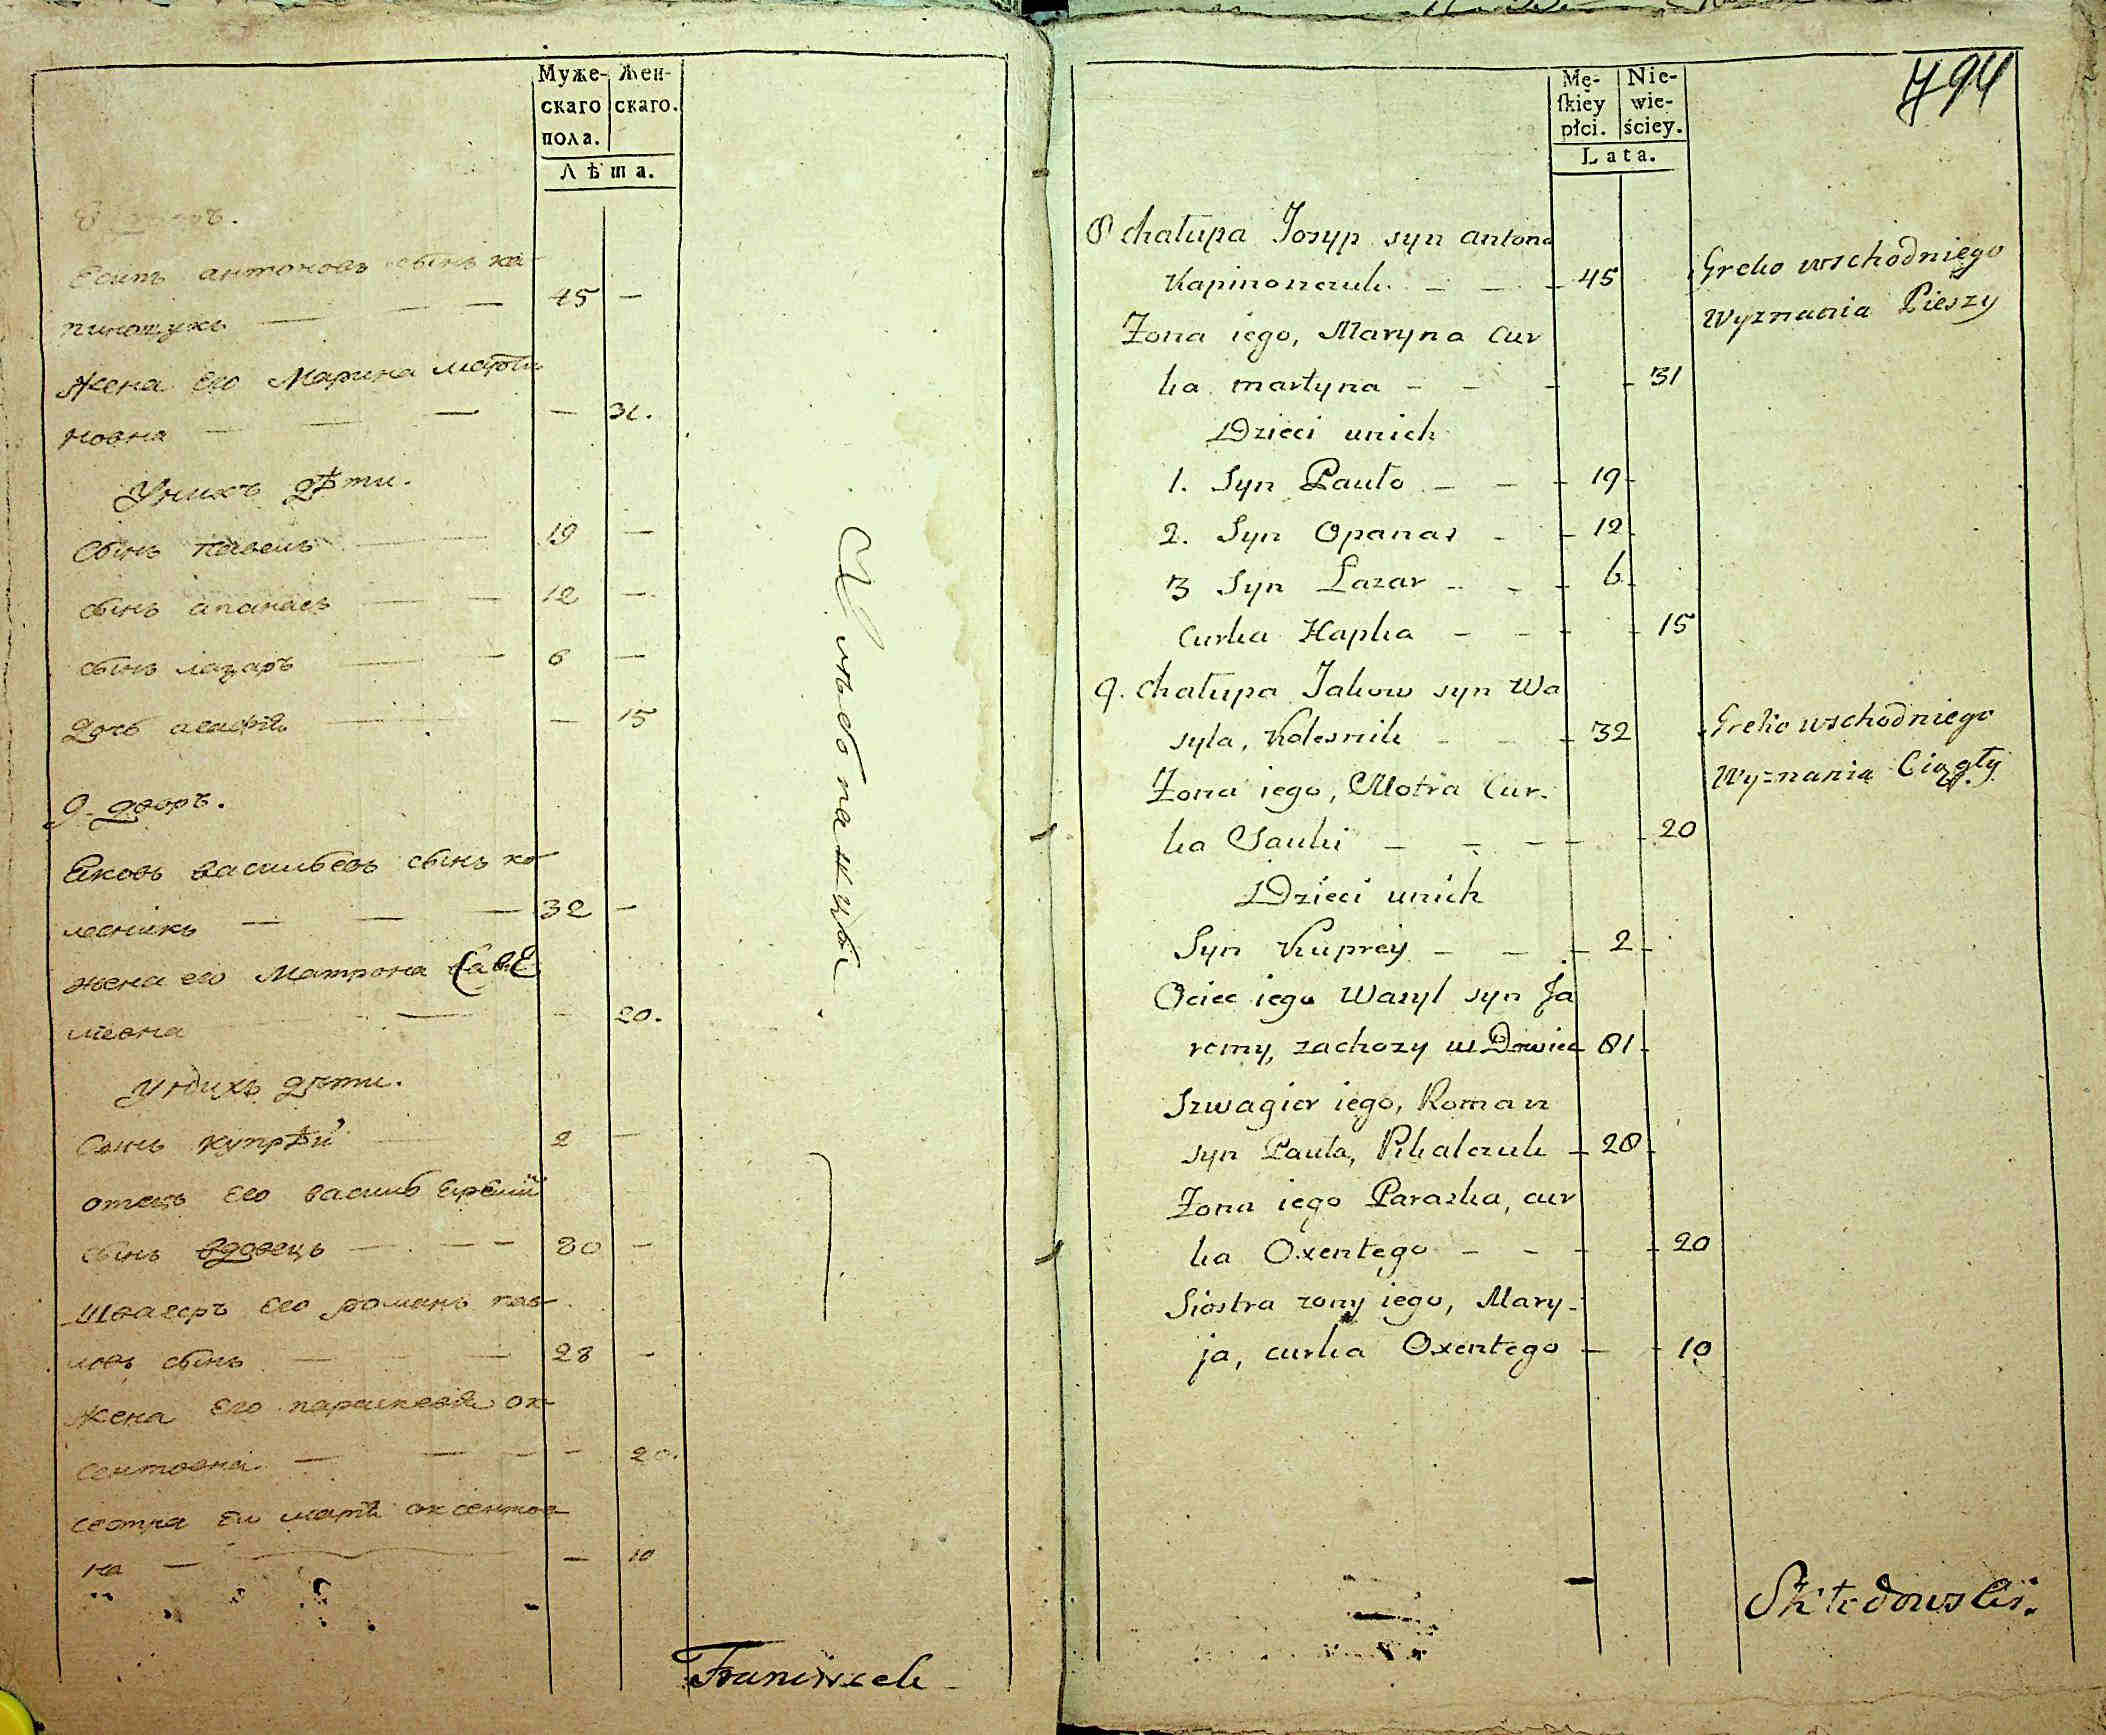 Муже-
скаго
пола.
Жен-
скаго.
Лѣта.
8 дворъ.
Есипъ антоновъ сынъ ка-
пинощукъ — — — 45 —
Жена Его Марина марти
новна — — — — 31.
Унихъ дѣти.
Сынъ павелъ — 19 —
сынъ апанасъ — — 12 —
сынъ лазаръ — — 6 —
дочь агафѣя — — 15
9. дворъ.
Яковъ васильевъ сынъ ко-
лесникъ — — — 32 —
жена его Матрона Савѣ
льевна — — 20.
унихъ дѣти.
Сынъ купрѣй — 2 —
отецъ Его василь Ерѣмій
сынъ вдовецъ — — — 80 —
Швагеръ Его романъ пав-
ловъ сынъ — — — 28 —
Жена Его параскевѣя ок-
сентовна — — — — 20.
сестра Ей марія оксентов
на — — 10
Franciszek
Mę-
ſkiey
płci.
Nie-
wie-
ściey.
Lata.
794
8 chałupa Josyp syn antona
Kapinoszczuk — — — 45
Greko wschodniego
Wyznania Pieszy
Zona iego, Maryna Cur
ka martyna — — — 31
Dzieci unich
1. Syn Pawło — — — 19
2. Syn Opanas — — 12
3 Syn Łazar — — — 6
Curka Hapka — — — 15
9. chałupa Jakow syn Wa
syla, Kolesnik — — — 32
Greko wschodniego
Wyznania Ciągły
Zona iego, Motra Cur.
ka Sawki — — — — 20
Dzieci unich
Syn Kuprey — — — 2
Ociec iego Wasyl syn Ja
remy, zachozy wDowiec 81
Szwagier iego, Roman
syn Pawła, Pikalczuk — 28
Zona iego Paraska, cur
ka Oxentego — — — 20
Siostra zony iego, Mary-
ja, curka Oxentego — — 10
Skłodowski.